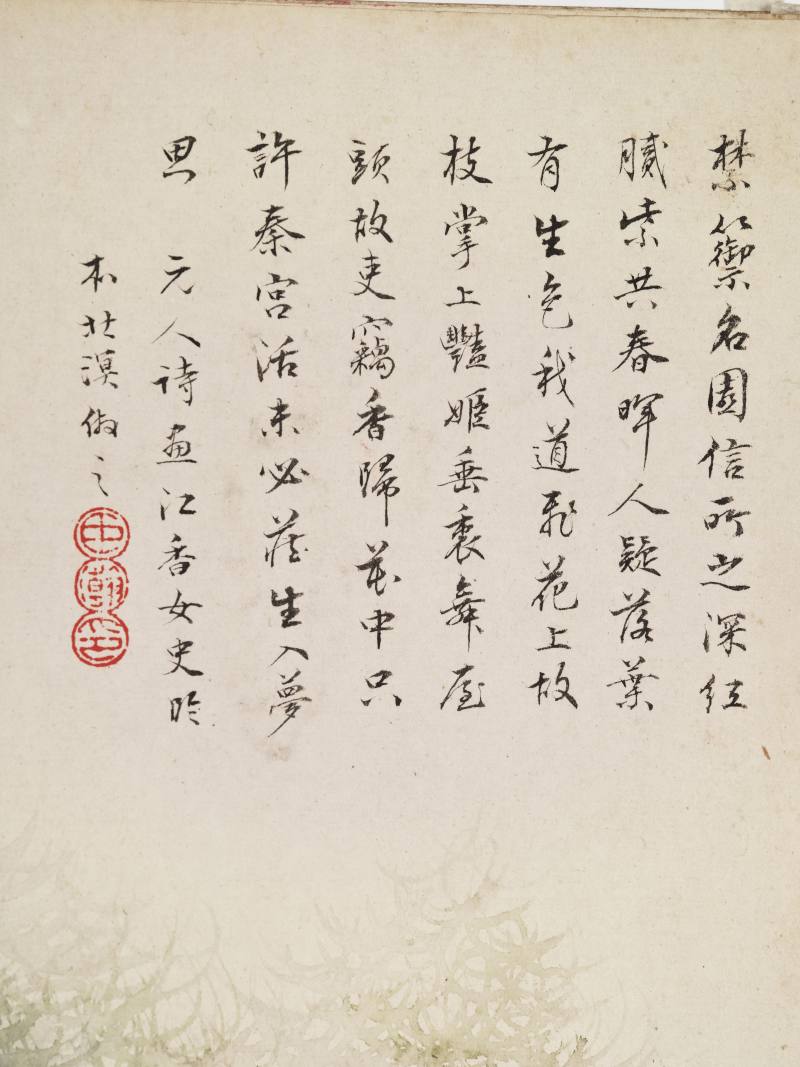 禁籞名園信所之深紅
膩紫共春暉人疑落葉
有生色我道飛花上故
枝掌上豔姬垂舞屋
頭故吏竊香歸花中只
許秦宮活未必莊生入夢
思 元人詩畫江香女史
本北溟倣之